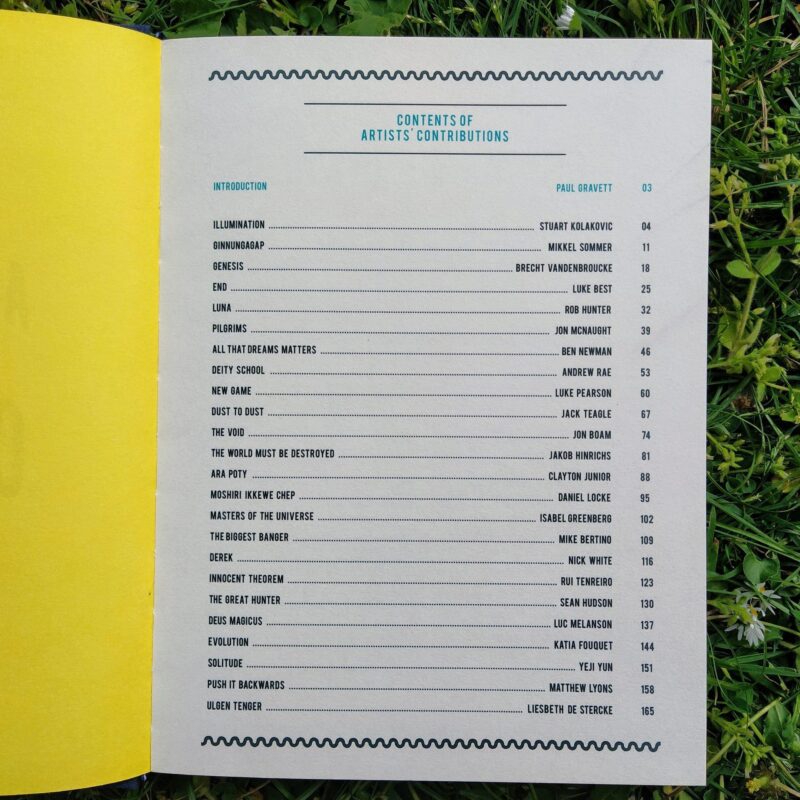 CONTENTS OF
ARTISTS' CONTRIBUTIONS
INTRODUCTION PAUL GRAVETT 03
ILLUMINATION STUART KOLAKOVIC 04
GINNUNGAGAP MIKKEL SOMMER 11
GENESIS BRECHT VANDENBROUCKE 18
END LUKE BEST 25
LUNA ROB HUNTER 32
PILGRIMS JON MCNAUGHT 39
ALL THAT DREAMS MATTERS BEN NEWMAN 46
DEITY SCHOOL ANDREW RAE 53
NEW GAME LUKE PEARSON 60
DUST TO DUST JACK TEAGLE 67
THE VOID JON BOAM 74
THE WORLD MUST BE DESTROYED JAKOB HINRICHS 81
ARA POTY CLAYTON JUNIOR 88
MOSHIRI IKKEWE CHEP DANIEL LOCKE 95
MASTERS OF THE UNIVERSE ISABEL GREENBERG 102
THE BIGGEST BANGER MIKE BERTINO 109
DEREK NICK WHITE 116
INNOCENT THEOREM RUI TENREIRO 123
THE GREAT HUNTER SEAN HUDSON 130
DEUS MAGICUS LUC MELANSON 137
EVOLUTION KATIA FOUQUET 144
SOLITUDE YEJI YUN 151
PUSH IT BACKWARDS MATTHEW LYONS 158
ULGEN TENGER LIESBETH DE STERCKE 165